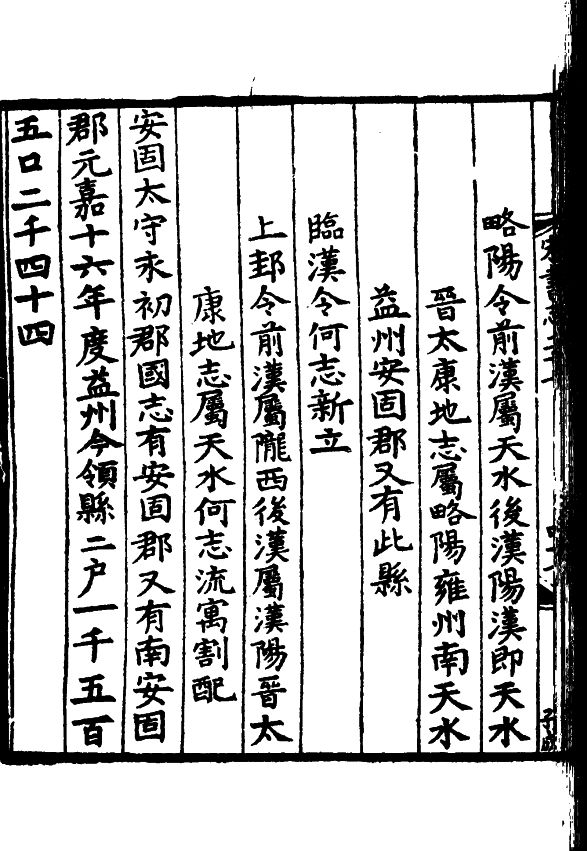 略陽令前漢屬天水後漢陽漢即天水
晉太康地志屬略陽雍州南天水
益州安固郡又有此縣
臨漢令何志新立
上邽令前漢屬隴西後漢屬漢陽晉太
康地志屬天水何志流寓割配
安固太守永初郡國志有安固郡又有南安固
郡元嘉十六年度益州今領縣二户一千五百
五口二千四十四